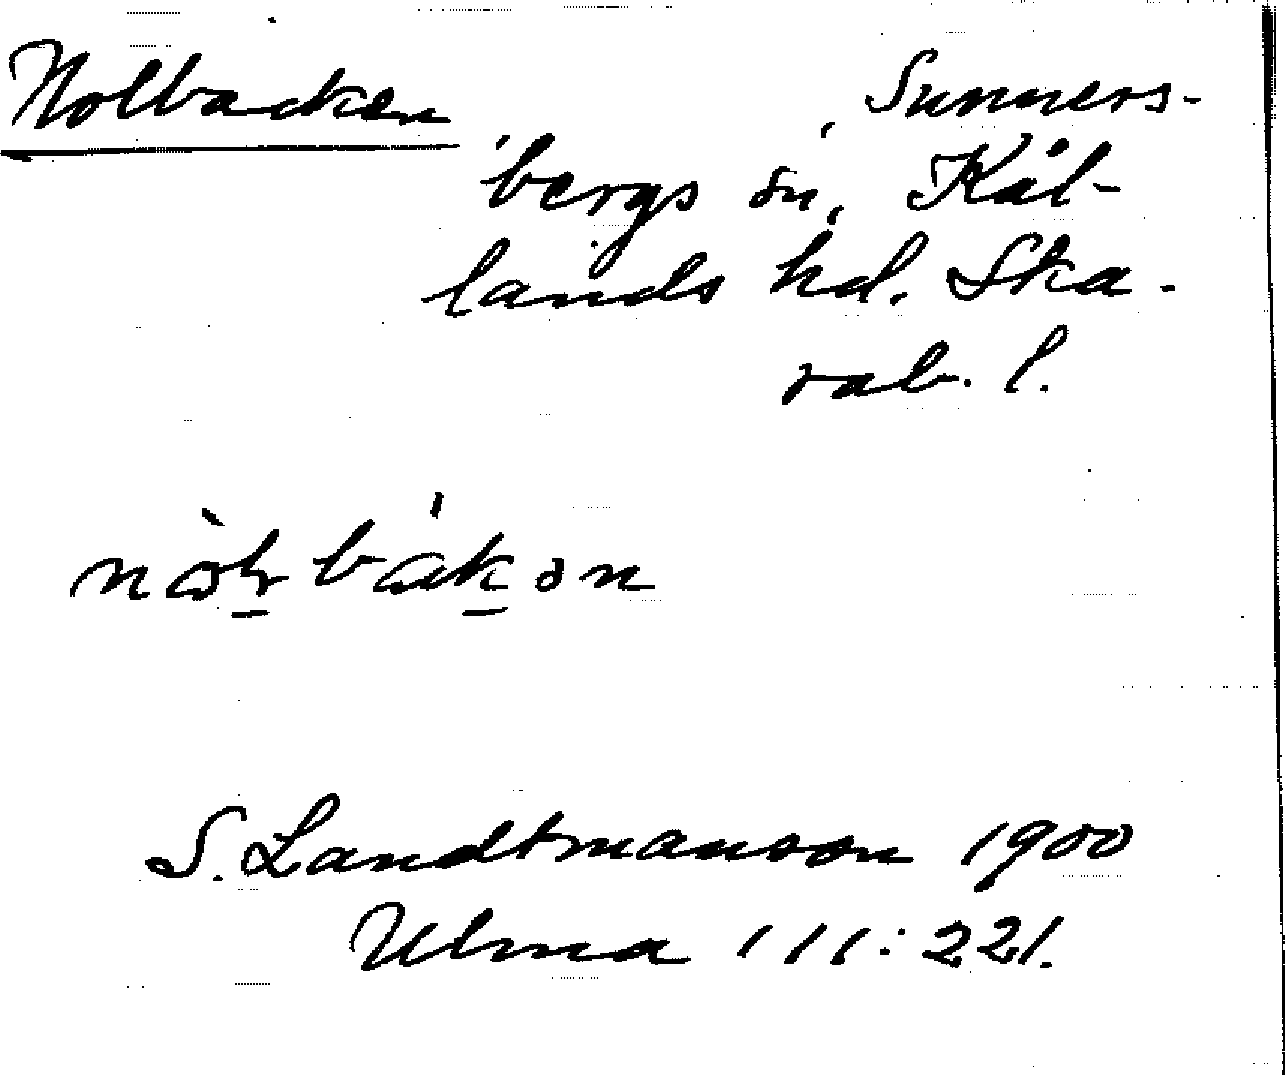 Nolbacken Sunners-
bergs sn, Kål-
lands hd. Ska-
rab. l.
S. Landtmanson 1900
Ulma 111:221.